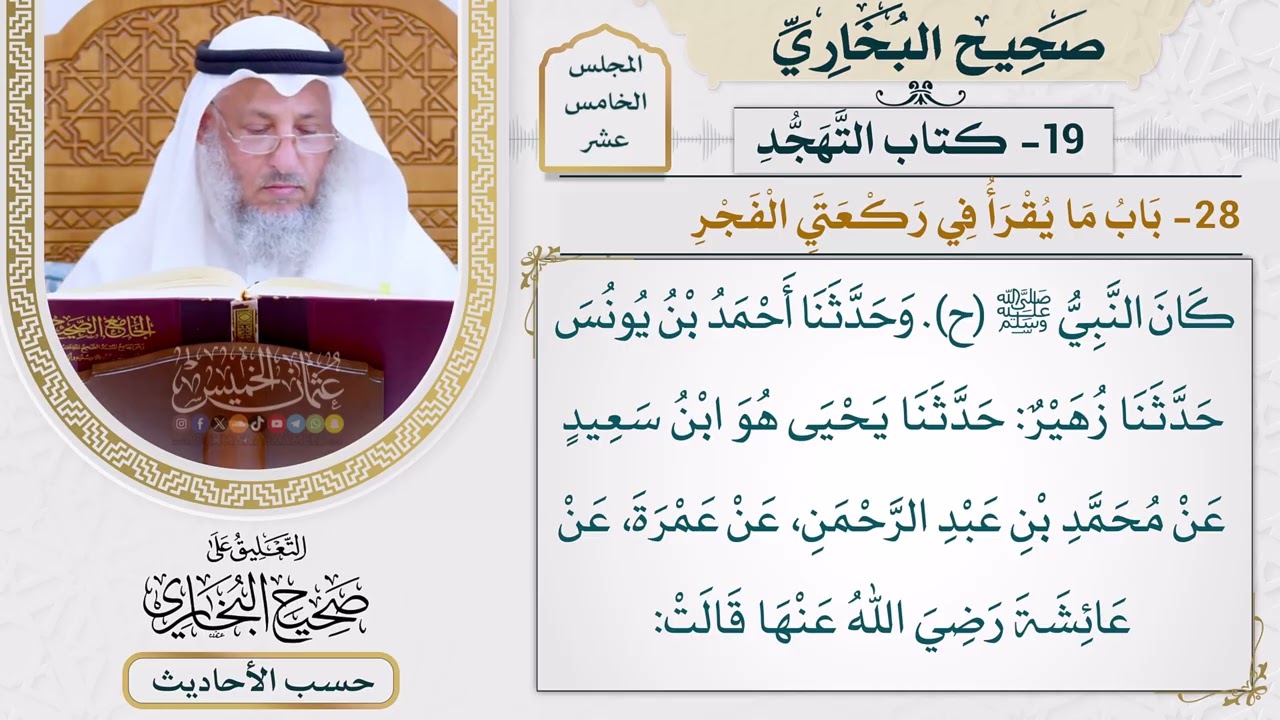 صَحِيح البُخَارِيِّ
المجلس
الخامس
عشر
19- كتاب التَّهَجُّدِ
28- بَابُ مَا يُقْرَأُ فِي رَكْعَتَيِ الْفَجْرِ
كَانَ النَّبِيُّ ﷺ (ح). وَحَدَّثَنَا أَحْمَدُ بْنُ يُونُسَ
حَدَّثَنَا زُهَيْرٌ: حَدَّثَنَا يَحْيَى هُوَ ابْنُ سَعِيدٍ
عَنْ مُحَمَّدِ بْنِ عَبْدِ الرَّحْمَنِ، عَنْ عَمْرَةَ، عَنْ
عَائِشَةَ رَضِيَ اللهُ عَنْهَا قَالَتْ:
الجامع الصحيح
عُثمان الخميس
التَّعليقُ عَلى
صَحِيح البُخَاري
حسب الأحاديث